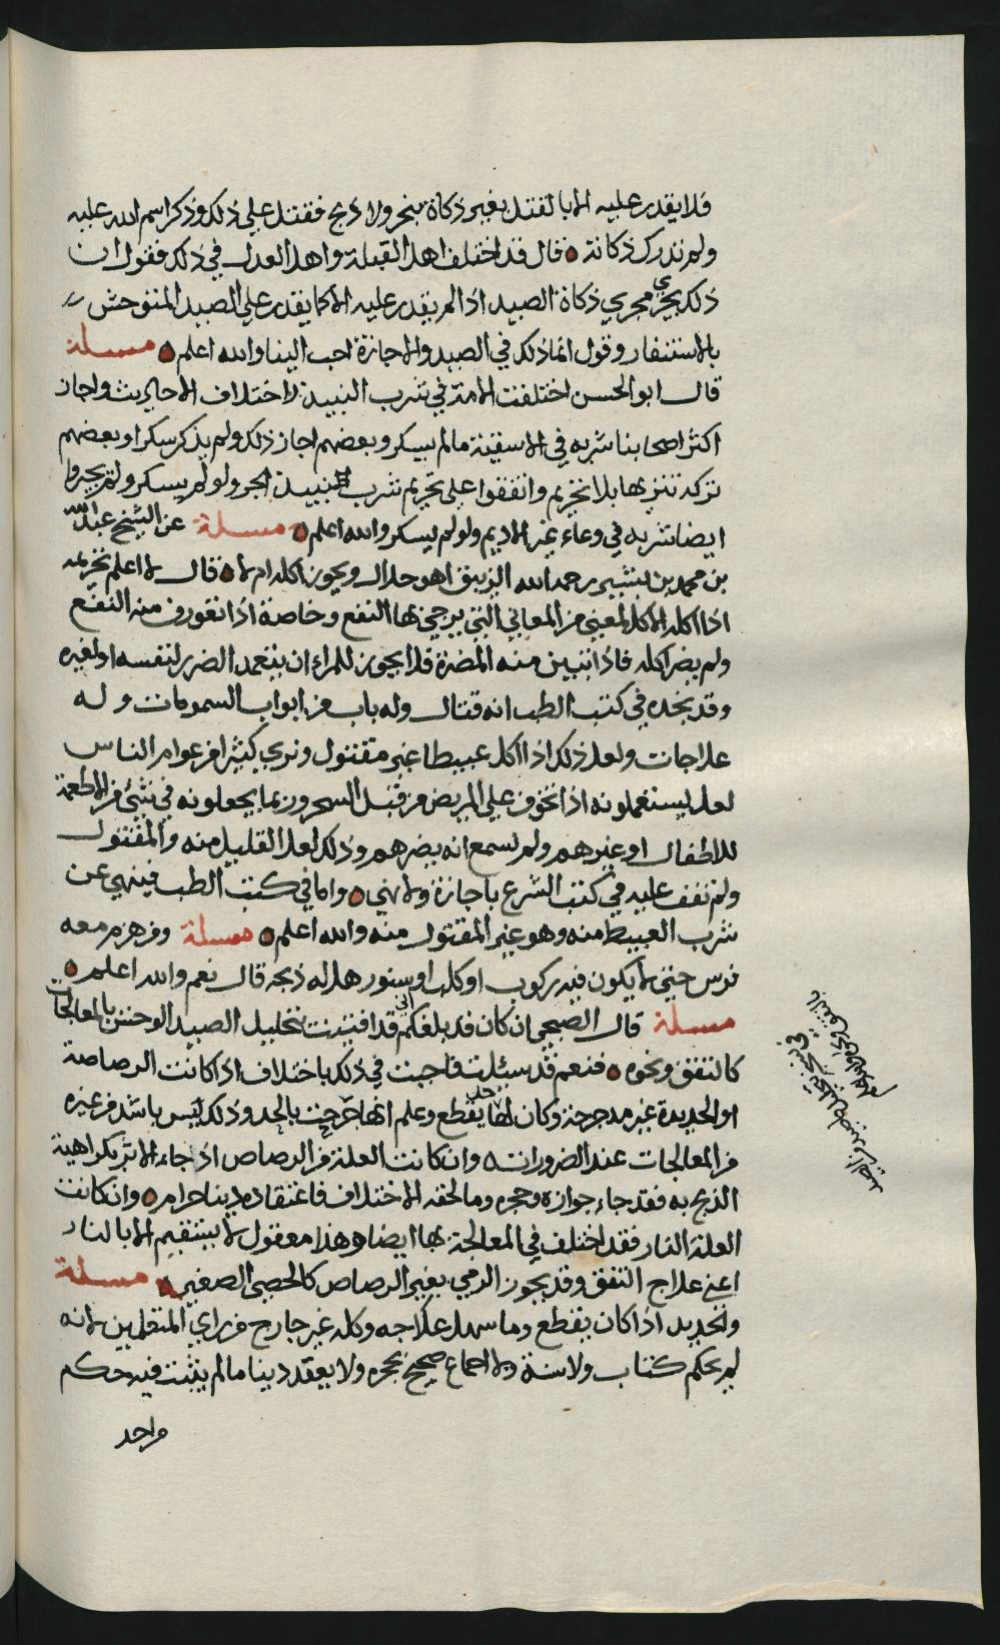 فلا يقدر عليه الا بالقتل بغير ذكاة بنحر ولا ذبح فقتل علي ذلك وذكر اسم الله عليه
ولم تدرك ذكاته ه قال قد اختلف اهل القبلة واهل العدل في ذلك فقول ان
ذلك يجزي مجري ذكاة الصيد اذا لم يقدر عليه الا كما يقدر علي الصيد المتوحش
بالاستنفار وقول انما ذلك في الصيد والاجازة احب الينا والله اعلم ه مسئلة
قال ابو الحسن اختلفت الامة في شرب النبيذ لاختلاف الاحاديث واجاز
اكثر اصحابنا شربه في الاسقية مالم يسكر وبعضهم اجاز ذلك ولم يذكر سكرا وبعضهم
تركه تنزيها بلا تحريم واتفقوا علي تحريم شرب نبيذ الجر ولو لم يسكر ولم يجيزوا
ايضا شربه في وعاء غير الاديم ولو لم يسكر والله اعلم ه مسئلة عن الشيخ عبدالله
بن محمد بن بشير رحمه الله الزيبق اهو حلال ويجوز اكله ام لا ه قال لا اعلم تحريمه
اذا اكله الاكل لمعني من المعاني التي يرجي بها النفع وخاصة اذا تعورف منه النفع
ولم يضر اكله فاذا تبين منه المضرة فلا يجوز للمرء ان يتعمد الضرر لنفسه او لغيره
وقد نجده في كتب الطب انه قتال وله باب من ابواب السمومات وله
علاجات ولعل ذلك اذا اكل عبيطا غير مقتول ونري كثيرا من عوام الناس
لعله يستعملونه اذا تخوف علي المريض من قبل السحر وربما يجعلونه في شئ من الاطعمة
للاطفال او غيرهم ولم نسمع انه يضرهم وذلك لعله القليل منه والمقتول
ولم نقف عليه في كتب الشرع باجازة ولا نهي ه واما في كتب الطب فينهي عن
شرب العبيط منه وهو غير المقتول منه والله اعلم ه مسئلة ومن هرم معه
ترس حتي لا يكون فيه ركوب او كلب او سنور هل له ذبحه قال نعم والله اعلم ه
مسئلة قال الصبحي ان كان قد بلغكم اني قد افتيت بتحليل الصيد الوحشي بالمعالجات
كالتفق ونحوه ه فنعم قد سئلت فاجبت في ذلك باختلاف اذا كانت الرصاصة
او الحديدة غير مدحرجة وكان لها حد يقطع وعلم انها جرحت بالحد وذلك ليس باشد من غيره
من المعالجات عند الضرورات ه وان كانت العلة من الرصاص اذ جاء الاثر بكراهية
الذبح به فقد جاء جوازه وحجره وما لحقه الاختلاف فاعتقاده دينا حرام ه وان كانت
العلة النار فقد اختلف في المعالجة بها ايضا وهذا معقول لا يستقيم الا بالنار
اعني علاج التفق وقد يجوز الرمي بغير الرصاص كالحصي الصغير ه مسئلة
والحديد اذا كان يقطع وما سهل علاجه وكله غير خارج من راي المتعلمين لانه
لم يحكم كتاب ولا سنة ولا اجماع صحيح بحجره ولا يعقد دينا ما لم يثبت فيه حكم
واحد